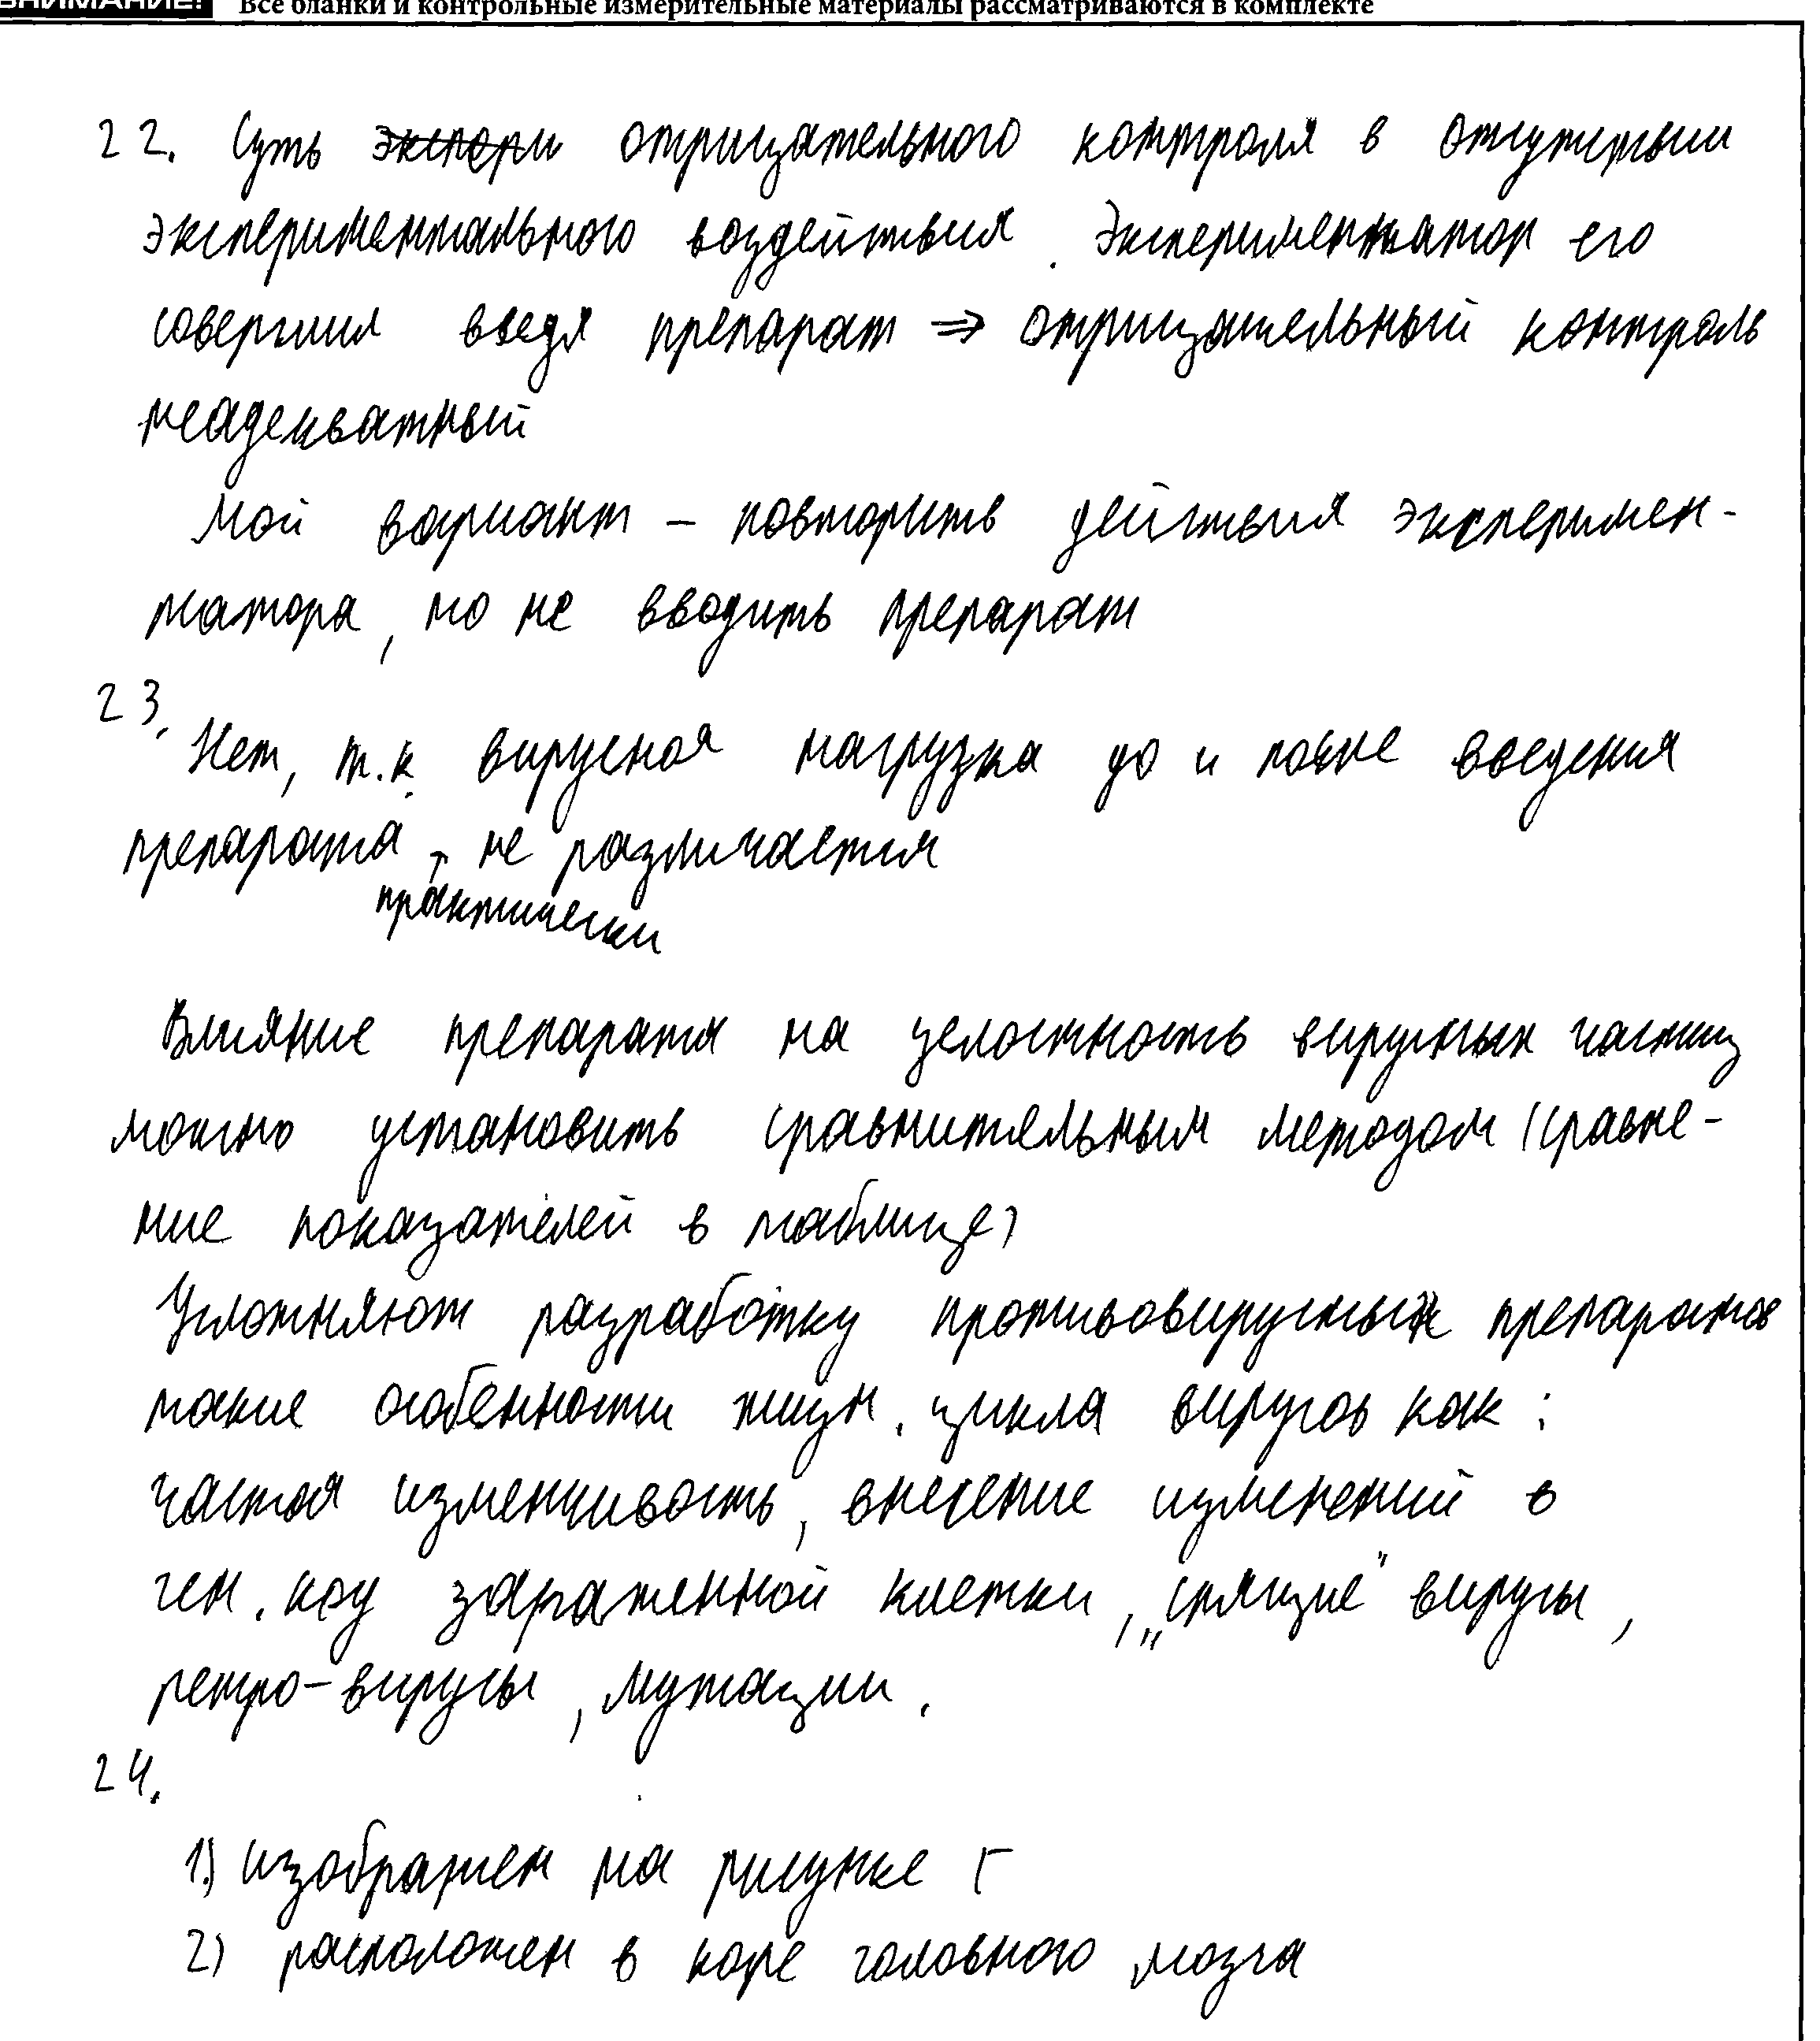 ВНИМАНИЕ! Все бланки и контрольные измерительные материалы рассматриваются в комплекте
22. Суть экспери отрицательного контроля в отсутствии
экспериментального воздействия. Экспериментатор его
совершил введя препарат ⇒ отрицательный контроль
неадекватный
Мой вариант – повторить действия эксперимен-
татора, но не вводить препарат
23. Нет, т.к. вирусная нагрузка до и после введения
препарата практически не различается
Влияние препарата на целостность вирусных частиц
можно установить сравнительным методом (сравне-
ние показателей в таблице)
Усложняют разработку противовирусных препаратов
такие особенности жизн. цикла вирусов как:
частая изменчивость, внесение изменений в
ген. код зараженной клетки, „спящие" вирусы,
ретро-вирусы, мутации.
24.
1) изображен на рисунке Г
2) расположен в коре головного мозга